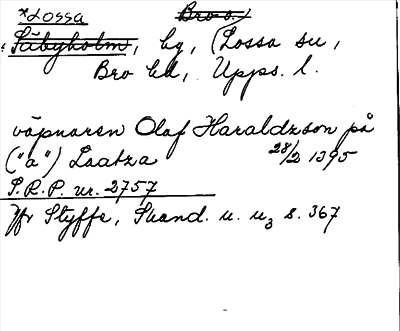 *Lossa Bro o.)
Säbyholm, by, (Lossa su,
Bro hd, Upps. l.
väpnaren Olaf Haraldzson på
("a") Laatza 28/2 1395
S.R.P. nr. 2757
Jfr Styffe, Skand. u. u3 s. 367